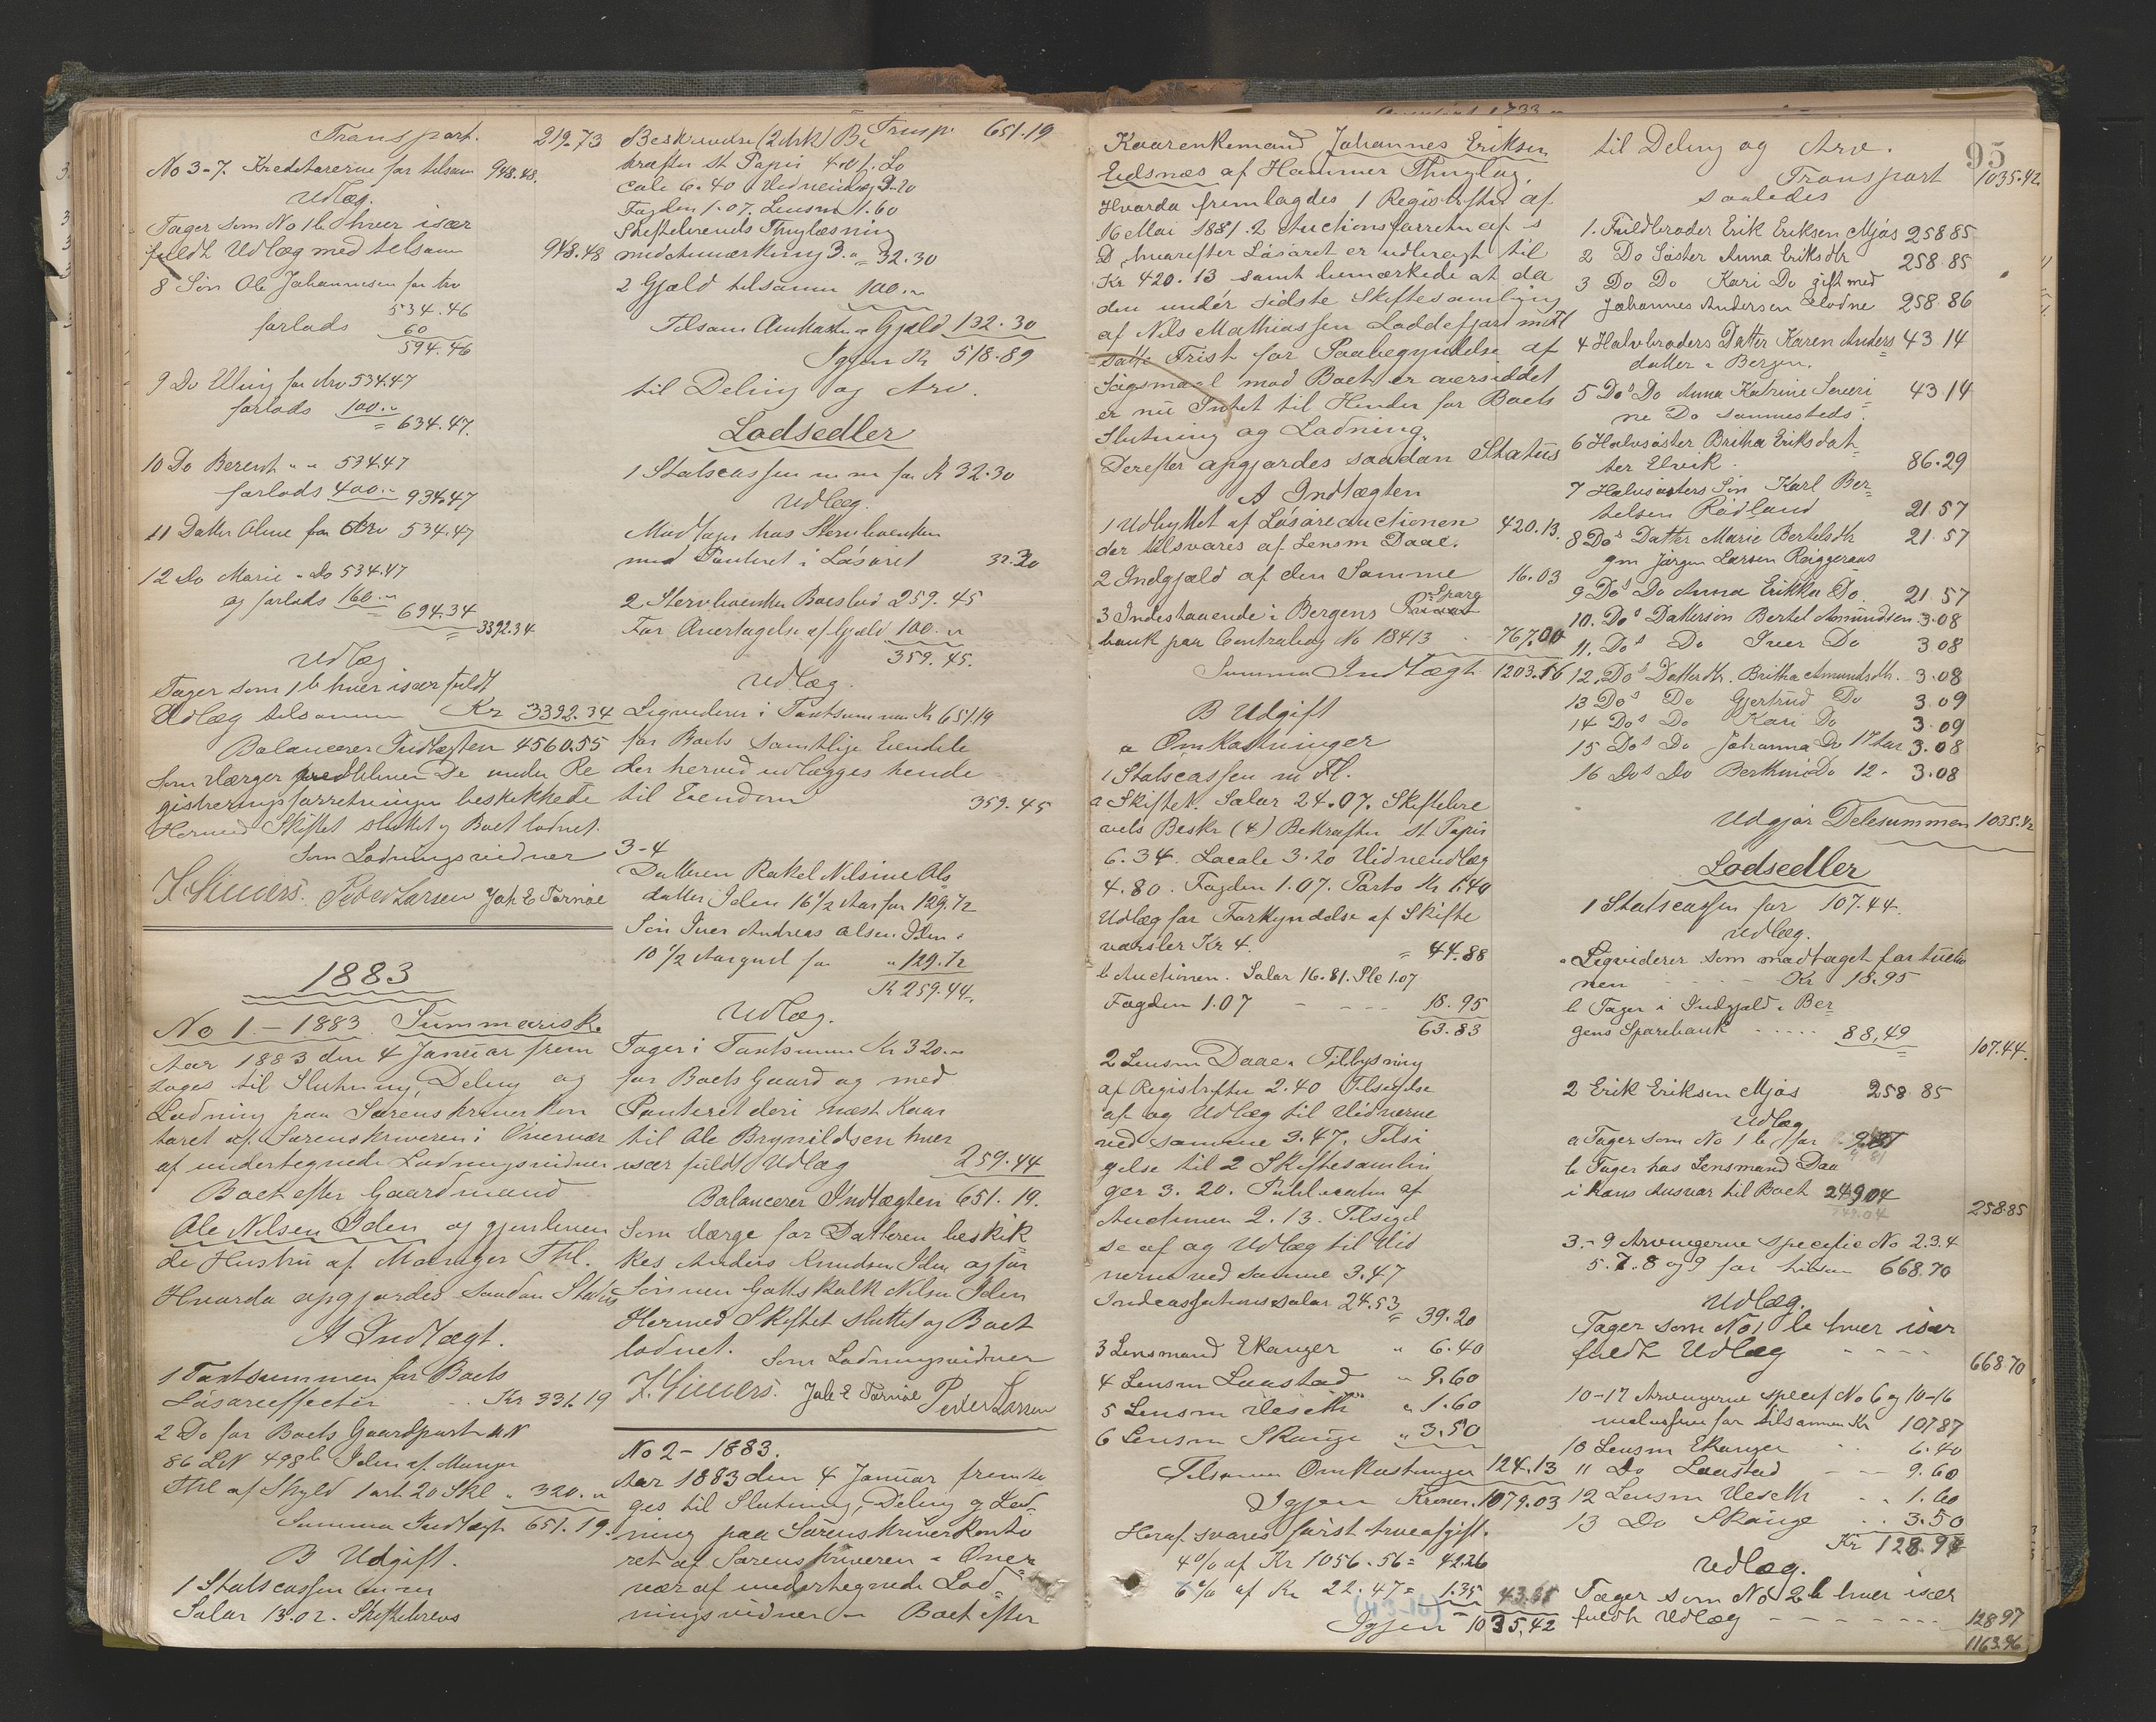 Transport. 219.73
No 3-7. Kreditorerne for tilsam 948.48.
Udlæg.
Tager som No 1 b hver især
fuldt Udlæg med tilsam 948.48
8 Søn Ole Johannesen for Arv
534.46
forlods 60
594.46
9 Do for Arv 534.47
forlods 100.-
= 634.47.
10 Do Berent " " 534.47
forlods 400.- 934.47
11 Datter Oline for Arv 534.47
12 Do Marie " Do 534.47
og forlods 160.-
694.34
3392.34
Udlæg
Tager som 1 b hver især fuldt
Udlæg tilsammen Kr 3392.34
Balancerer Indtægten 4560.55
Som Værger De under Re
gistreringsforretningen beskikkede
Hermed Skiftet sluttet og Boet lodnet.
Som Lodningsvidner
H. Sivers. Peder Larsen Joh E Tornöe
1883
No 1 - 1883. Summarisk.
Aar 1883 den 4 Januar frem
toges til Slutning, Deling og
Lodning paa Sorenskriverkon
toret af Sorenskriveren i Overvær
af undertegnede Lodningsvidner
Boet efter Gaardmand
Ole Nilsen Iden og gjenleven
de Hustru af Manger Thl.
Hvorda opgjordes saadan Status
A Indtægt.
1 Taxtsummen for Boets
Løsøreeffecter .. Kr 331.19
2 Do for Boets Gaardpart MN
86 LN 498 b Iden af Manger
Thl af Skyld 1 ort 20 Skl " 320.-
Summa Indtægt 651.19.
B Udgift.
1 Statscassen m m
Salar 13.02. Skiftebrevs
Transp. 651.19
Beskrivelse (2 Ark) Be
kræften st Papir 4.01. Lo
cale 6.40 Vidneudlæg 3.20
Fogden 1.07. Lensm 1.60
Skiftebrevets Thinglæsning
med Anmærkning 3.- = 32.30
2 Gjæld tilsamm 100.-
Tilsam Omkostn. & Gjæld 132.30
Igjen Kr 518.89
til Deling og Arv.
Lodsedler
1 Statscassen m m for Kr 32.30
Udlæg.
Modtager hos Stervboenken
med Panteret i Løsöret 32.30
2 Stervboenken Boeslod 259.45
For Overtagelse af Gjæld 100.-
359.45.
Udlæg.
Ligviderer i Taxtsummen Kr 651.19
for Boets samtlige Eiendele
der herved udlægges hende
til Eiendom 359.45
3-4
Datteren Rakel Nilsine Ols
datter Iden 16 1/2 Aar for 129.72
Søn Iver Andreas Olsen Iden "
10 1/2 Aar gml for " 129.72
Kr 259.44.
Udlæg.
Tager i Taxtsummen Kr 320.-
for Boets Gaard og med
Panteret deri næst Kaar
til Ole Brynildsen hver
især fuldt Udlæg 259.44
Balancerer Indtægten 651.19.
Som Værge for Datteren beskik
kes Anders Knudsen Iden og for
Sönnen Gottskalk Nilsen Iden
Hermed Skiftet sluttet og Boet
lodnet. Som Lodningsvidner
H. Sivers. Joh E Tornöe Peder Larsen
No 2 - 1883.
Aar 1883 den 4 Januar fremto
ges til Slutning, Deling og Lod
ning paa Sorenskriverkonto
ret af Sorenskriveren i Over
vær af undertegnede Lod
ningsvidner - Boet efter
Kaarenkemand Johannes Eriksen
Eidsnæs af Hammer Thinglag.
Hvorda fremlagdes 1 Registreftn af
16 Mai 1881. 2 Auctionsforretn af s
D. hvorefter Løsöret er udbragt til
Kr 420.13 samt bemærkede at da
den under sidste Skiftesamling
af Nils Mathiassen Loddefjord
satte Frist for Paabegyndelse af
Søgsmaal mod Boet er oversiddet
er nu Intet til Hinder for Boets
Slutning og Lodning.
Derefter opgjordes saadan Status
A Indtægten
1 Udbyttet af Løsöreauctionen 420.13.
der tilsvares af Lensm Daae.
2 Indgjæld af den Samme 16.03
3 Indestaaende i Bergens Privat Sparg
bank paa Contrabog No 18413 - 767.00
Summa Indtægt 1203.16
B Udgift
a Omkostninger
1 Statscassen m Fl.
a Skiftet. Salar 24.07. Skiftebre
vets Beskr (4) Bekræften st Papir
6.34. Locale 3.20 Vidneudlæg
4.80. Fogden 1.07. Porto Kr 1.40
Udlæg for Forkyndelse af Skifte
varsler Kr 4. = 44.88
b Auctionen. Salar 16.81. Ple 1.07
Fogden 1.07 - - - 18.95
63.83
2 Lensm Daae. Tillysning
af Registreftn 2.40 Tilsigelse
af og Udlæg til Vidnerne
ved samme 3.47. Tilsi
gelse til 2 Skiftesamlin
ger 3.20. Publication af
Auctionen 2.13. Tilsigel
se af og Udlæg til Vid
nerne ved samme 3.47
Incassationssalar 24.53
= 39.20
3 Lensmand Ekanger " 6.40
4 Lensm Laastad " 9.60
5 Lensm Veseth " 1.60
6 Lensm Skauge " 3.50
Tilsammen Omkostninger 124.13
Igjen Kroner. 1079.03
Heraf svares først Arveafgift.
4 % af Kr 1056.56 = 42.26
6 % af Kr 22.47 = 1.35 43.61
Igjen - 1035.42
95
til Deling og Arv.
Transport 1035.42
saaledes
1. Fuldbroder Erik Eriksen Mjøs 258 85
2 Do Søster Anna Eriksdtr 258.85
3 Do Do Kari Do gift med
Johannes Andersen 258.86
4 Halvbroders Datter Karen Anders 43 14
datter i Bergen.
5 Do's Do Anna Katrine Severi 43.14
ne Do sammesteds.
6 Halvsöster Britha Eriksdat
ter Elvik. 86.29
7 Halvsösters Søn Karl Ber
telsen Rödland 21.57
8 Do's Datter Marie Bertelsdtr 21.57
gm Jørgen Larsen
9 Do's Do Anna Erikka Do. 21.57
10. Do's Dattersön Bertel Amundsen 3.08
11. Do's Do Iver Do 3 08
12. Do's Datterdtr. Britha Amundsdtr. 3.08
13 Do's Do Gjertrud Do 3.09
14 Do's Do Kari Do 3.09
15 Do's Do Johanna Do 17 Aar 3.08
16 Do's Do Do 12 - 3.08
Udgjør Delesummen 1035.42
Lodsedler
1 Statscassen for 107.44.
Udlæg.
a Ligviderer som modtaget for Auctio
nen - - - Kr 18.95
b Tager i Indgjæld i Ber
gens Sparebank - - - 88,49
107.44.
2 Erik Eriksen Mjøs 258 85
Udlæg
a Tager som No 1 b for
b Tager hos Lensmand Daa
i hans Ansvar til Boet 249.04
258.85
3.-9 Arvingerne specific No 2.3.4
5.7.8 og 9 for tilsam 668.70
Udlæg.
Tager som No 1 b hver især
fuldt Udlæg - - - - 668.70
10-17 Arvingerne specif No 6 og 10-16
for tilsammen Kr 107.87
10 Lensm Ekanger .. 6.40
11 Do Laastad - - 9.60
12 Lensm Veseth .. 1.60
13 Do Skauge .. 3.50
Kr 128.97
Udlæg.
Tager som No 2 b hver især
fuldt Udlæg - - - - - - - 128.97
1163.96